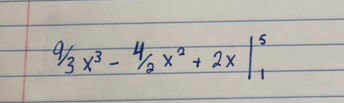 9/3 x³ - 4/2 x² + 2x |₁⁵